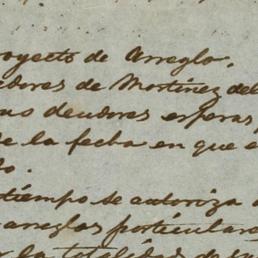 royecto de Arreglo.
edores de Martinez del
sus deudores esperas
de la fecha en que e
o.
tiempo se autoriza a
arreglos particulare
la totalidad de su